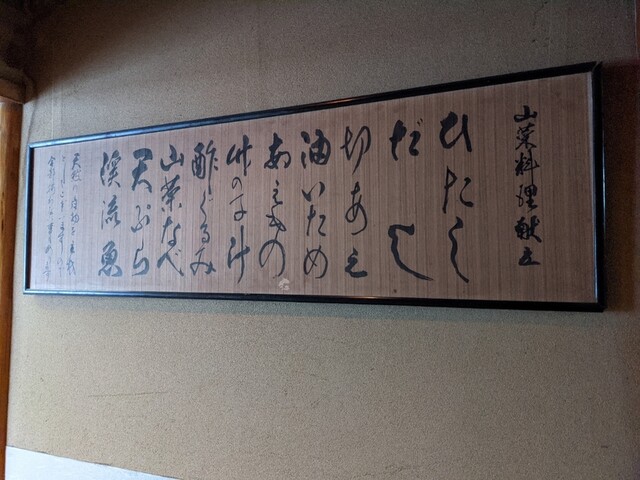 山菜料理献立
ひたし
だし
切あえ
油いため
あえもの
竹の子汁
酢どるみ
山菜なべ
天ぷら
渓流魚